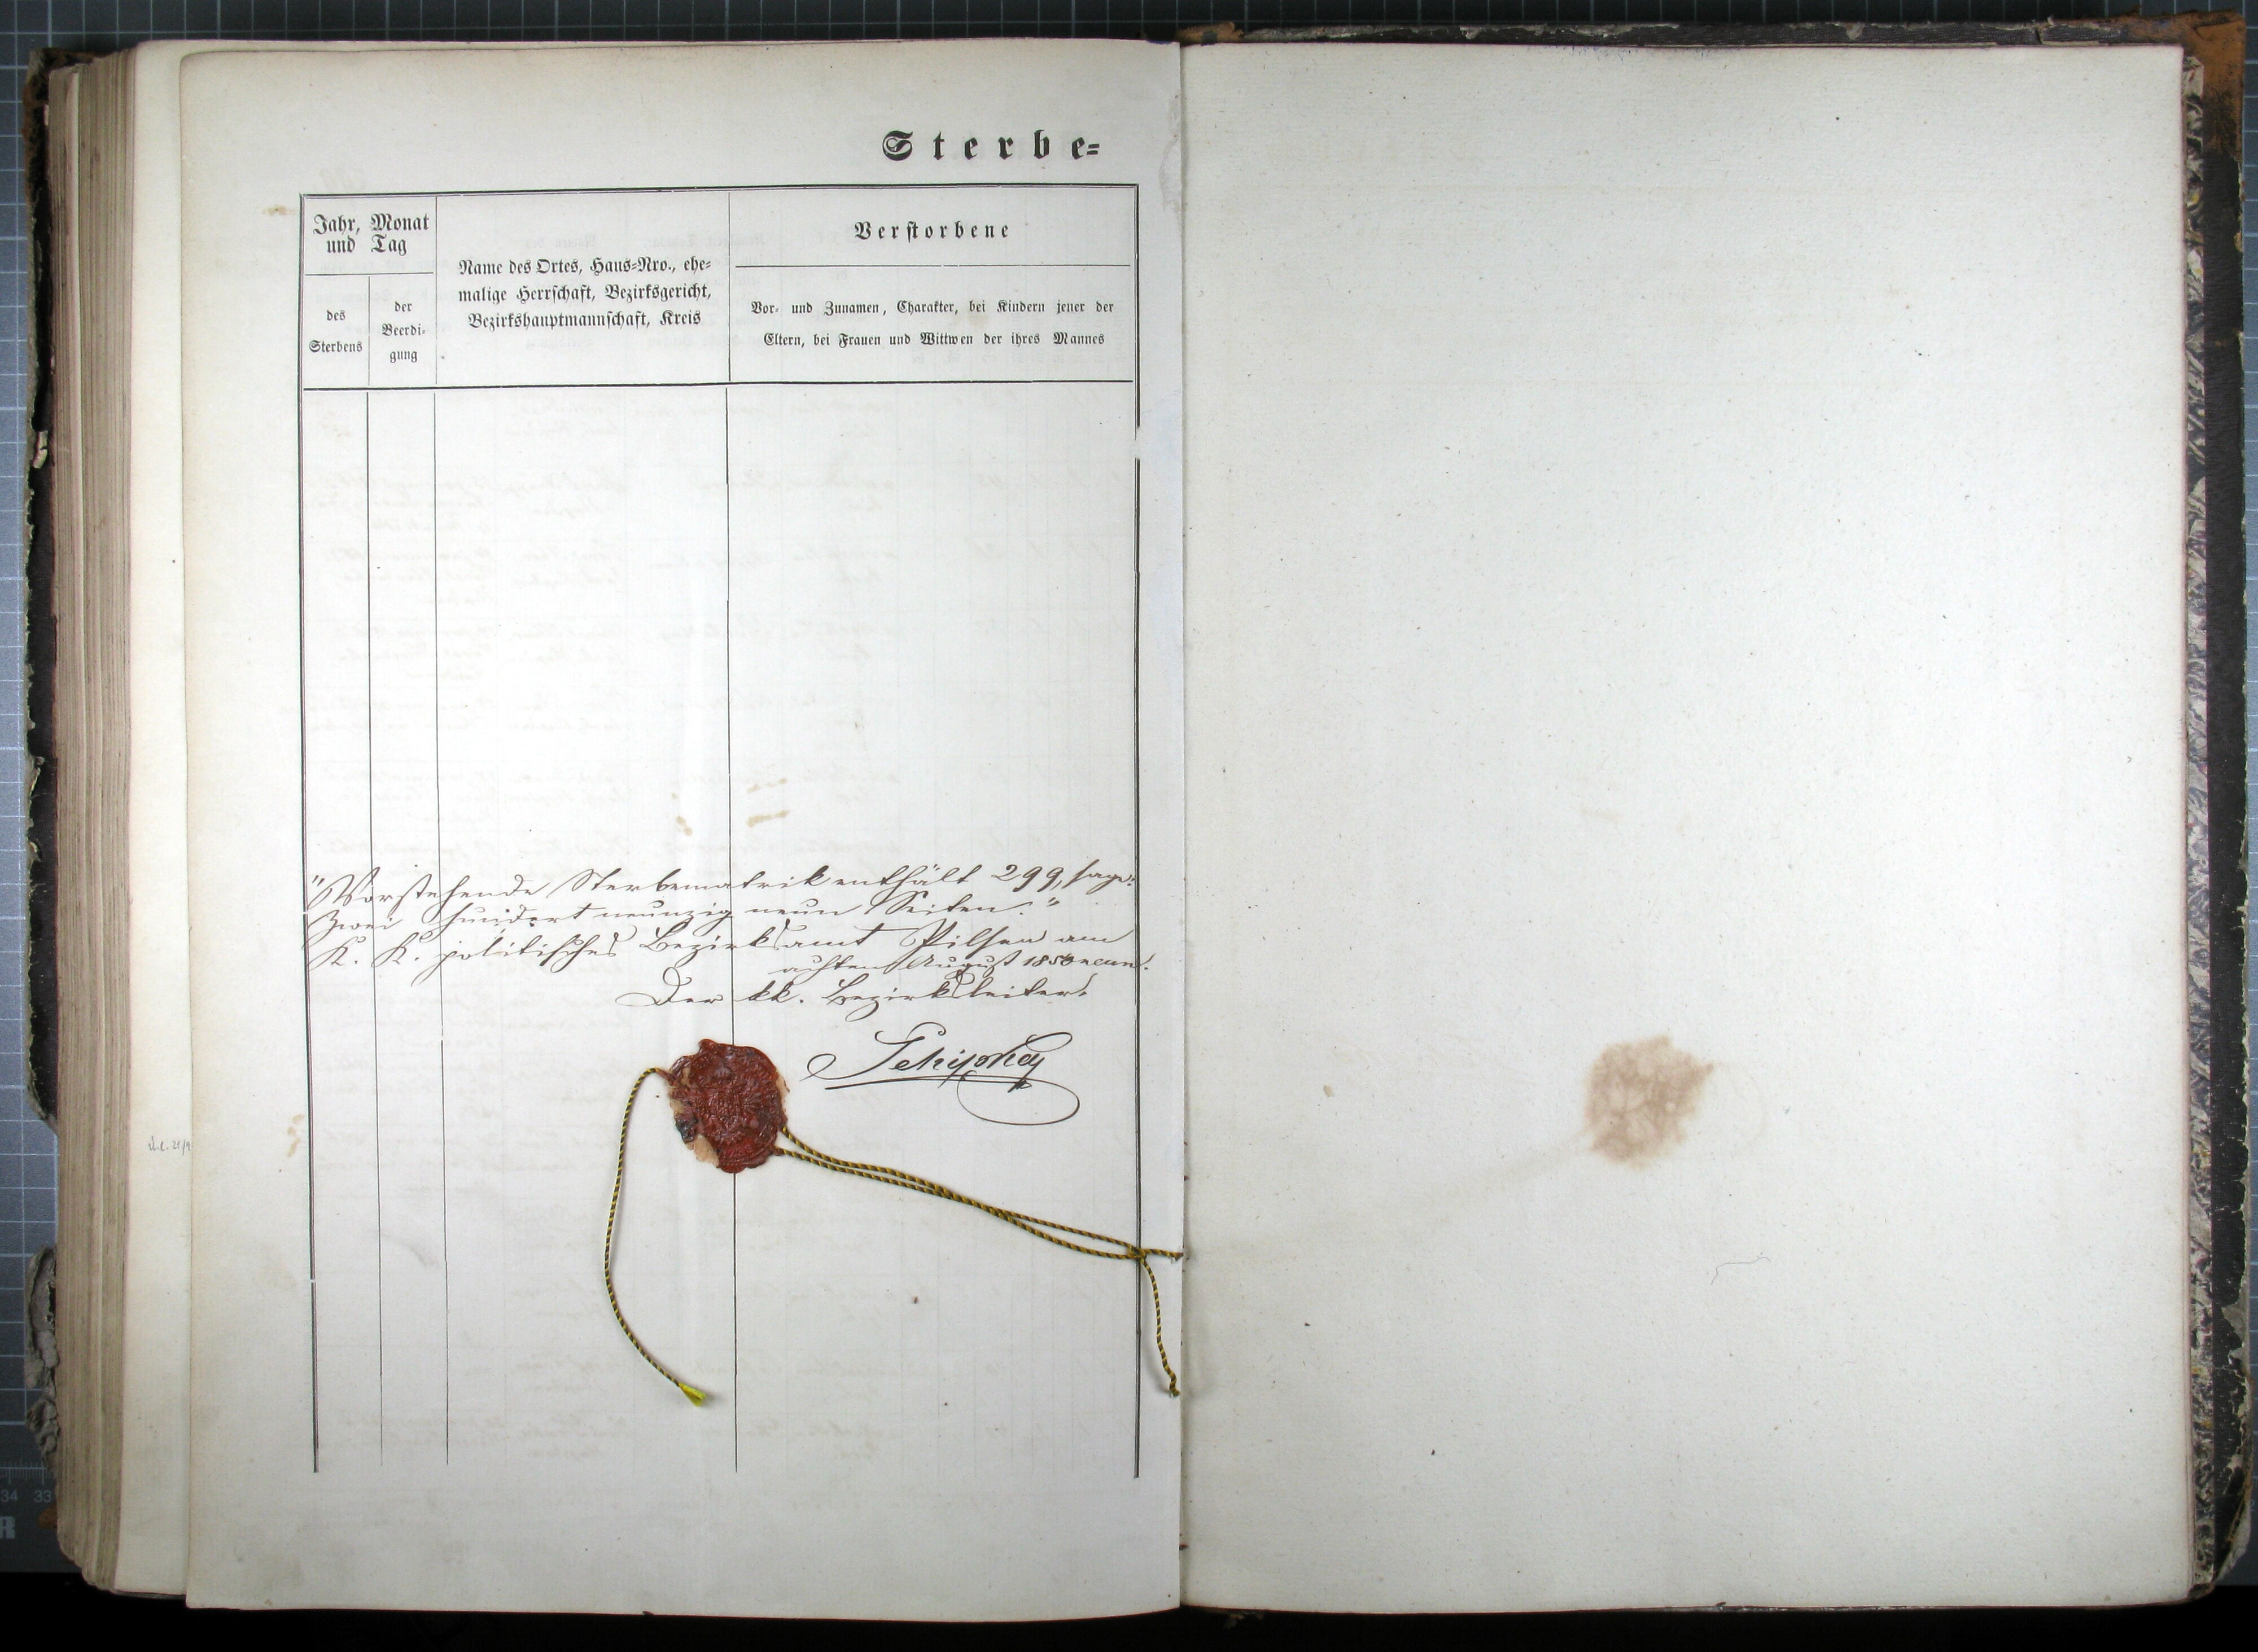 Sterbe=
Jahr, Monat
und Tag
des
Sterbens
der
Beerdi-
gung
Name des Ortes, Haus=Nro., ehe=
malige Herrschaft, Bezirksgericht,
Bezirkshauptmannschaft, Kreis
Verstorbene
Vor- und Zunamen, Charakter, bei Kindern jener der
Eltern, bei Frauen und Wittwen der ihres Mannes
"Vorstehende Sterbematrik enthält 299, sage:
Zwei hundert neunzig neun Seiten."
K. K. politisches Bezirksamt Pilsen am
achten August 185 neun.
Der kk. Bezirksleiter:
34 33